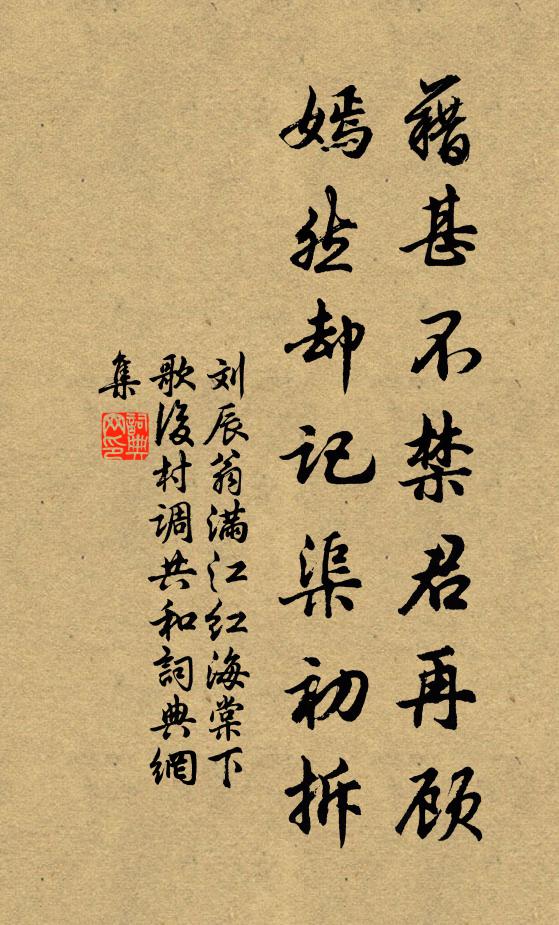 藉甚不禁君再顾
嫣然却记渠初拆
刘辰翁满江红海棠下
歌后村调共和詞典網
集
詞典網印